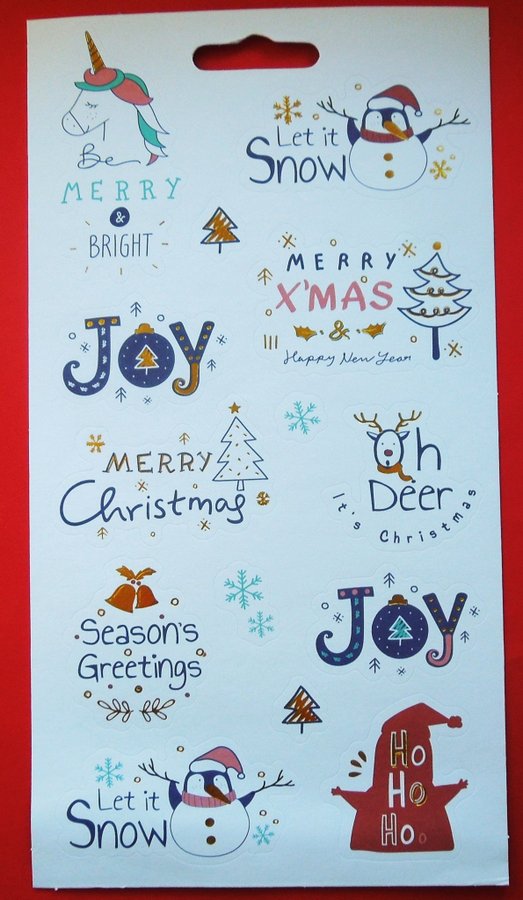 Be
MERRY
&
BRIGHT
Let it
Snow
MERRY
X'MAS
&
Happy New Year
JOY
MERRY
Christmas
Oh
Deer
It's Christmas
Season's
Greetings
JOY
Let it
Snow
Ho
Ho
Ho